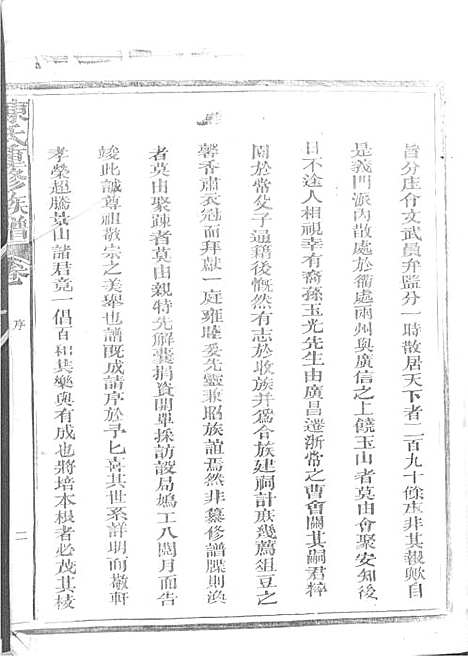 旨分庄仟文武員弁監分一時散居天下者二百九十餘庄非其報歟自
是義門派內散處於衢處兩州與廣信之上饒玉山者莫由會聚安知後
日不途人相視幸有裔孫玉光先生由廣昌遷浙常之曹會關其嗣君粹
園於常父子通籍後慨然有志於收族并爲合族建祠計庶幾薦俎豆之
馨香肅衣冠而拜獻一庭雍睦妥先靈兼昭族誼焉然非纂修譜牒則渙
者莫由聚疎者莫由親特先解囊捐資開單採訪設局鳩工八閱月而告
竣此誠尊祖敬宗之美舉也譜既成請序於予匕喜其世系詳明而敬軒
孝榮超騰景山諸君竟一倡百和其樂與有成也將培本根者必茂其枝
陳氏重修族譜
序
二